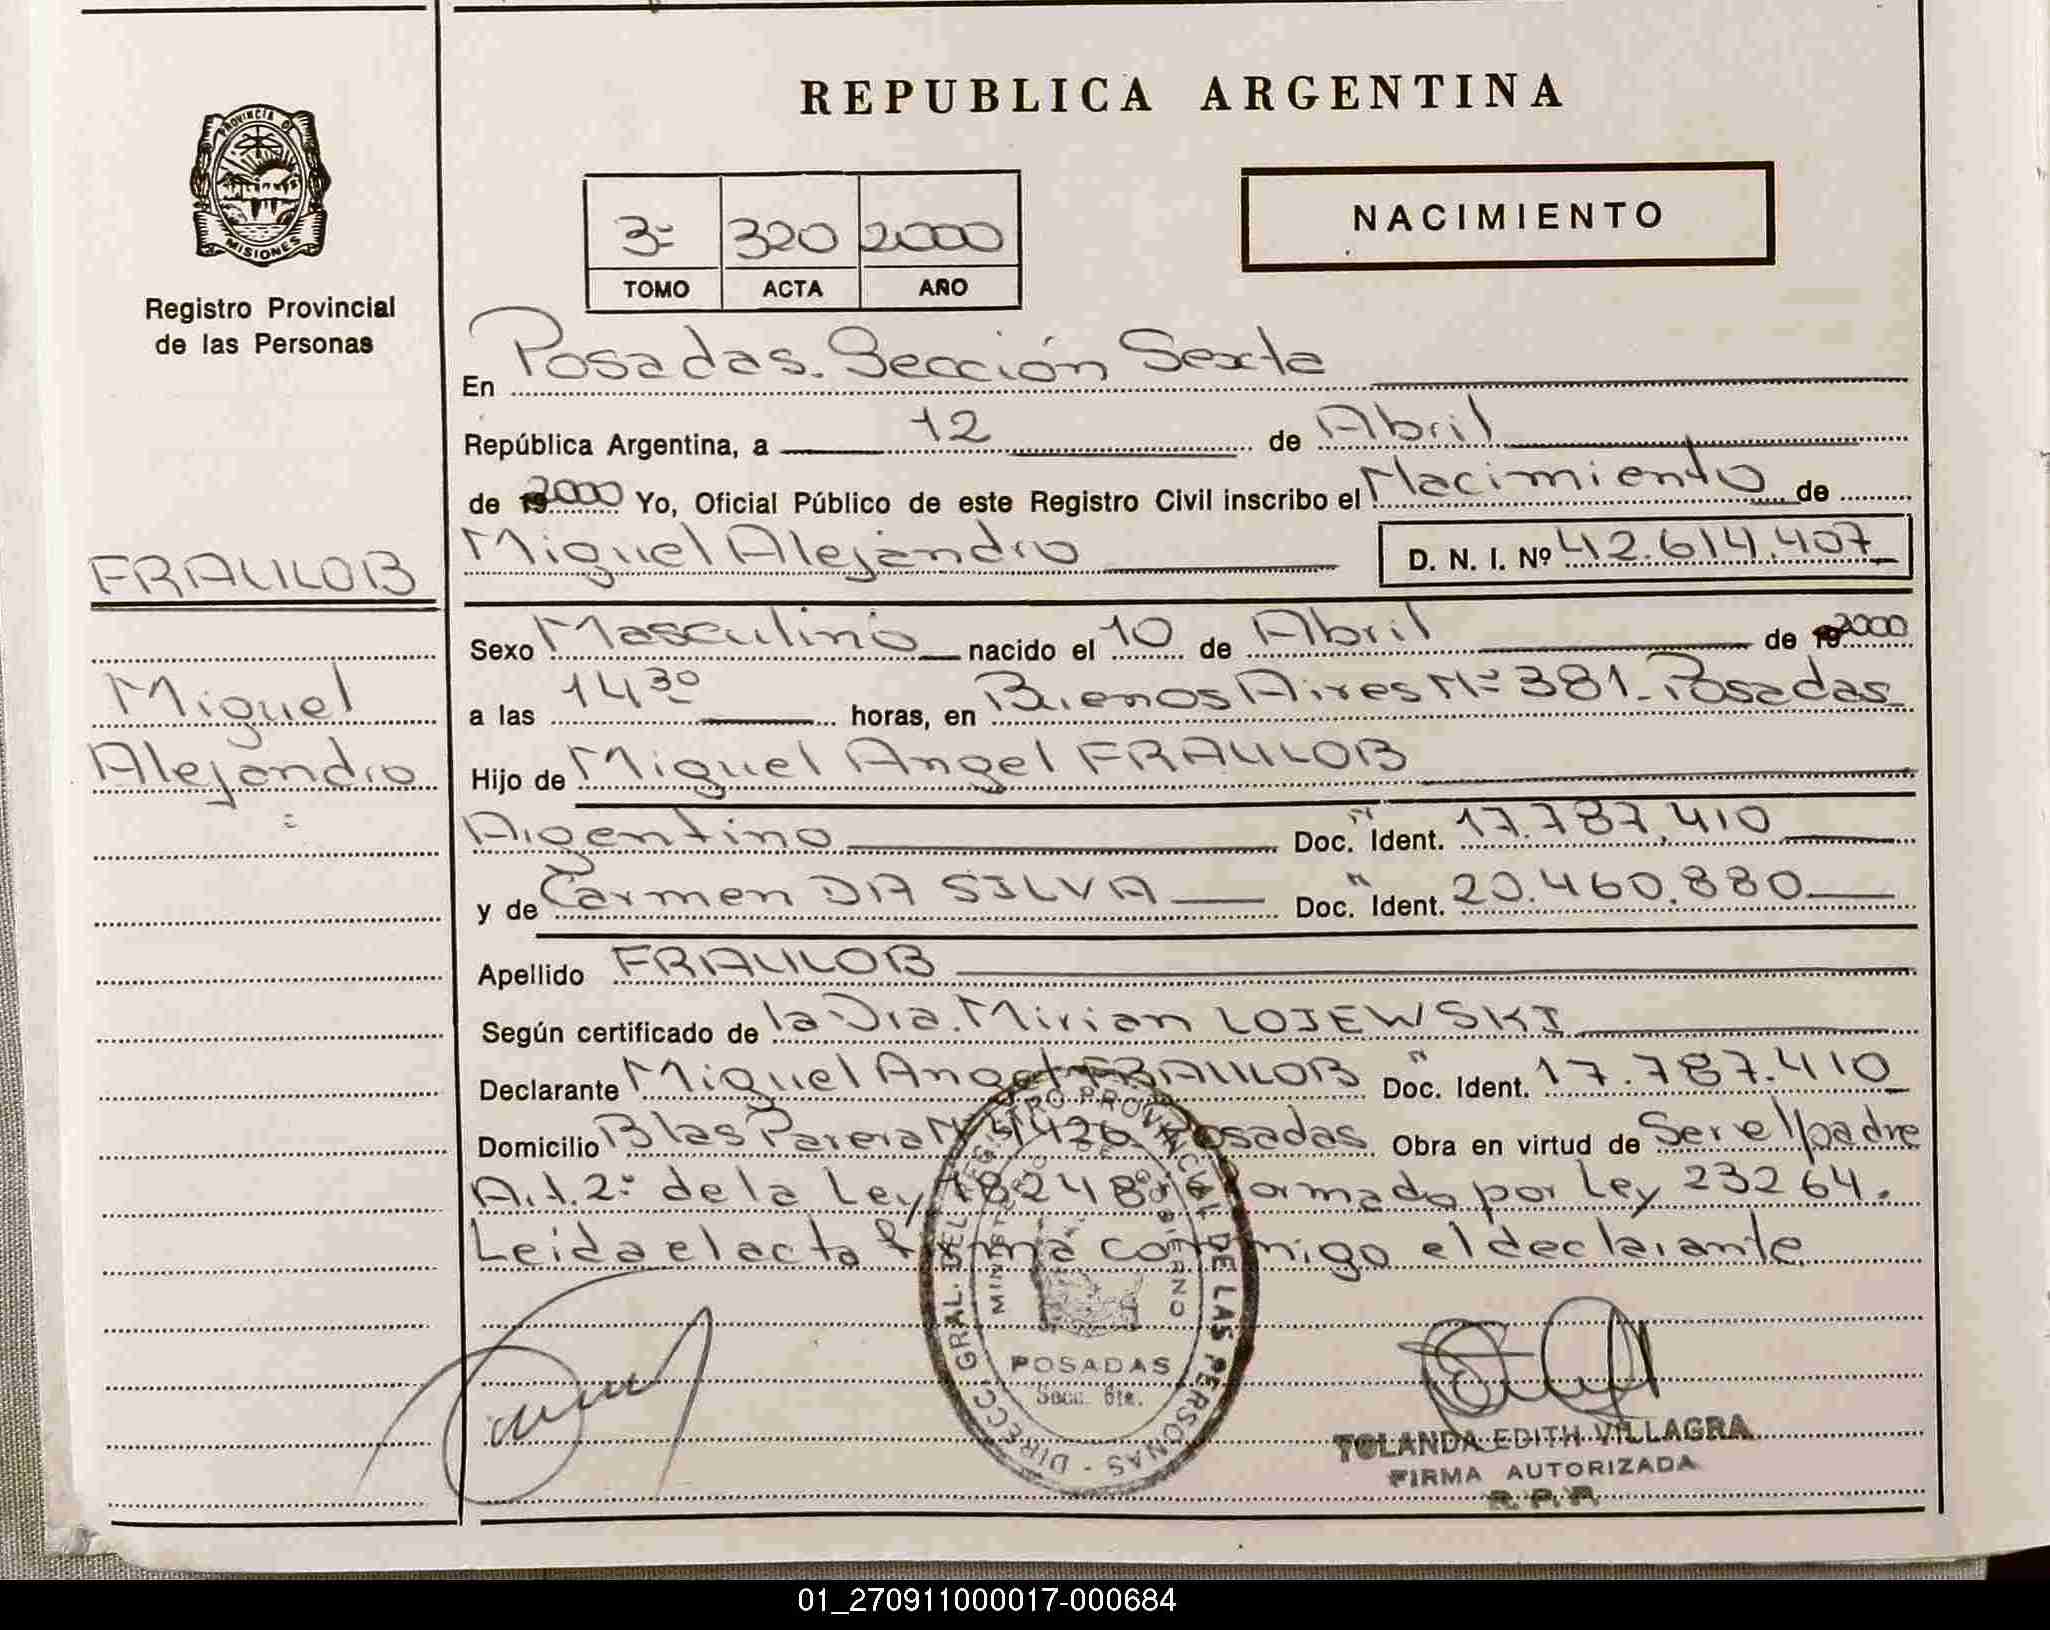 REPUBLICA ARGENTINA
PROVINCIA DE
MISIONES
Registro Provincial
de las Personas
3º 320 2000
TOMO ACTA AÑO
NACIMIENTO
En Posadas. Sección Sexta
República Argentina, a 12 de Abril
de 2000 Yo, Oficial Público de este Registro Civil inscribo el Nacimiento de
FRAULOB
Miguel Alejandro D. N. I. Nº 42.614.407
Sexo Masculino nacido el 10 de Abril de 2000
Miguel
a las 14 30 horas, en Buenos Aires Nº 381_ Posadas
Alejandro
Hijo de Miguel Angel FRAULOB
Argentino Doc. Ident. 17.787.410
y de Carmen DA SILVA Doc. Ident. 20.460.880
Apellido FRAULOB
Según certificado de la Dra. Mirian LOJEWSKI
Declarante Miguel Angel FRAULOB Doc. Ident. 17.787.410
Domicilio Blas Parera Nº 4426 Posadas Obra en virtud de Ser el padre
Art. 2º de la Ley 18248 reformado por Ley 23264.
Leida el acta firma conmigo el declarante
DIRECC. GRAL. DEL REGISTRO PROVINCIAL DE LAS PERSONAS
MINISTERIO DE GOBIERNO
POSADAS
Secc. 6ta.
YOLANDA EDITH VILLAGRA
FIRMA AUTORIZADA
R. P. P.
01_270911000017-000684